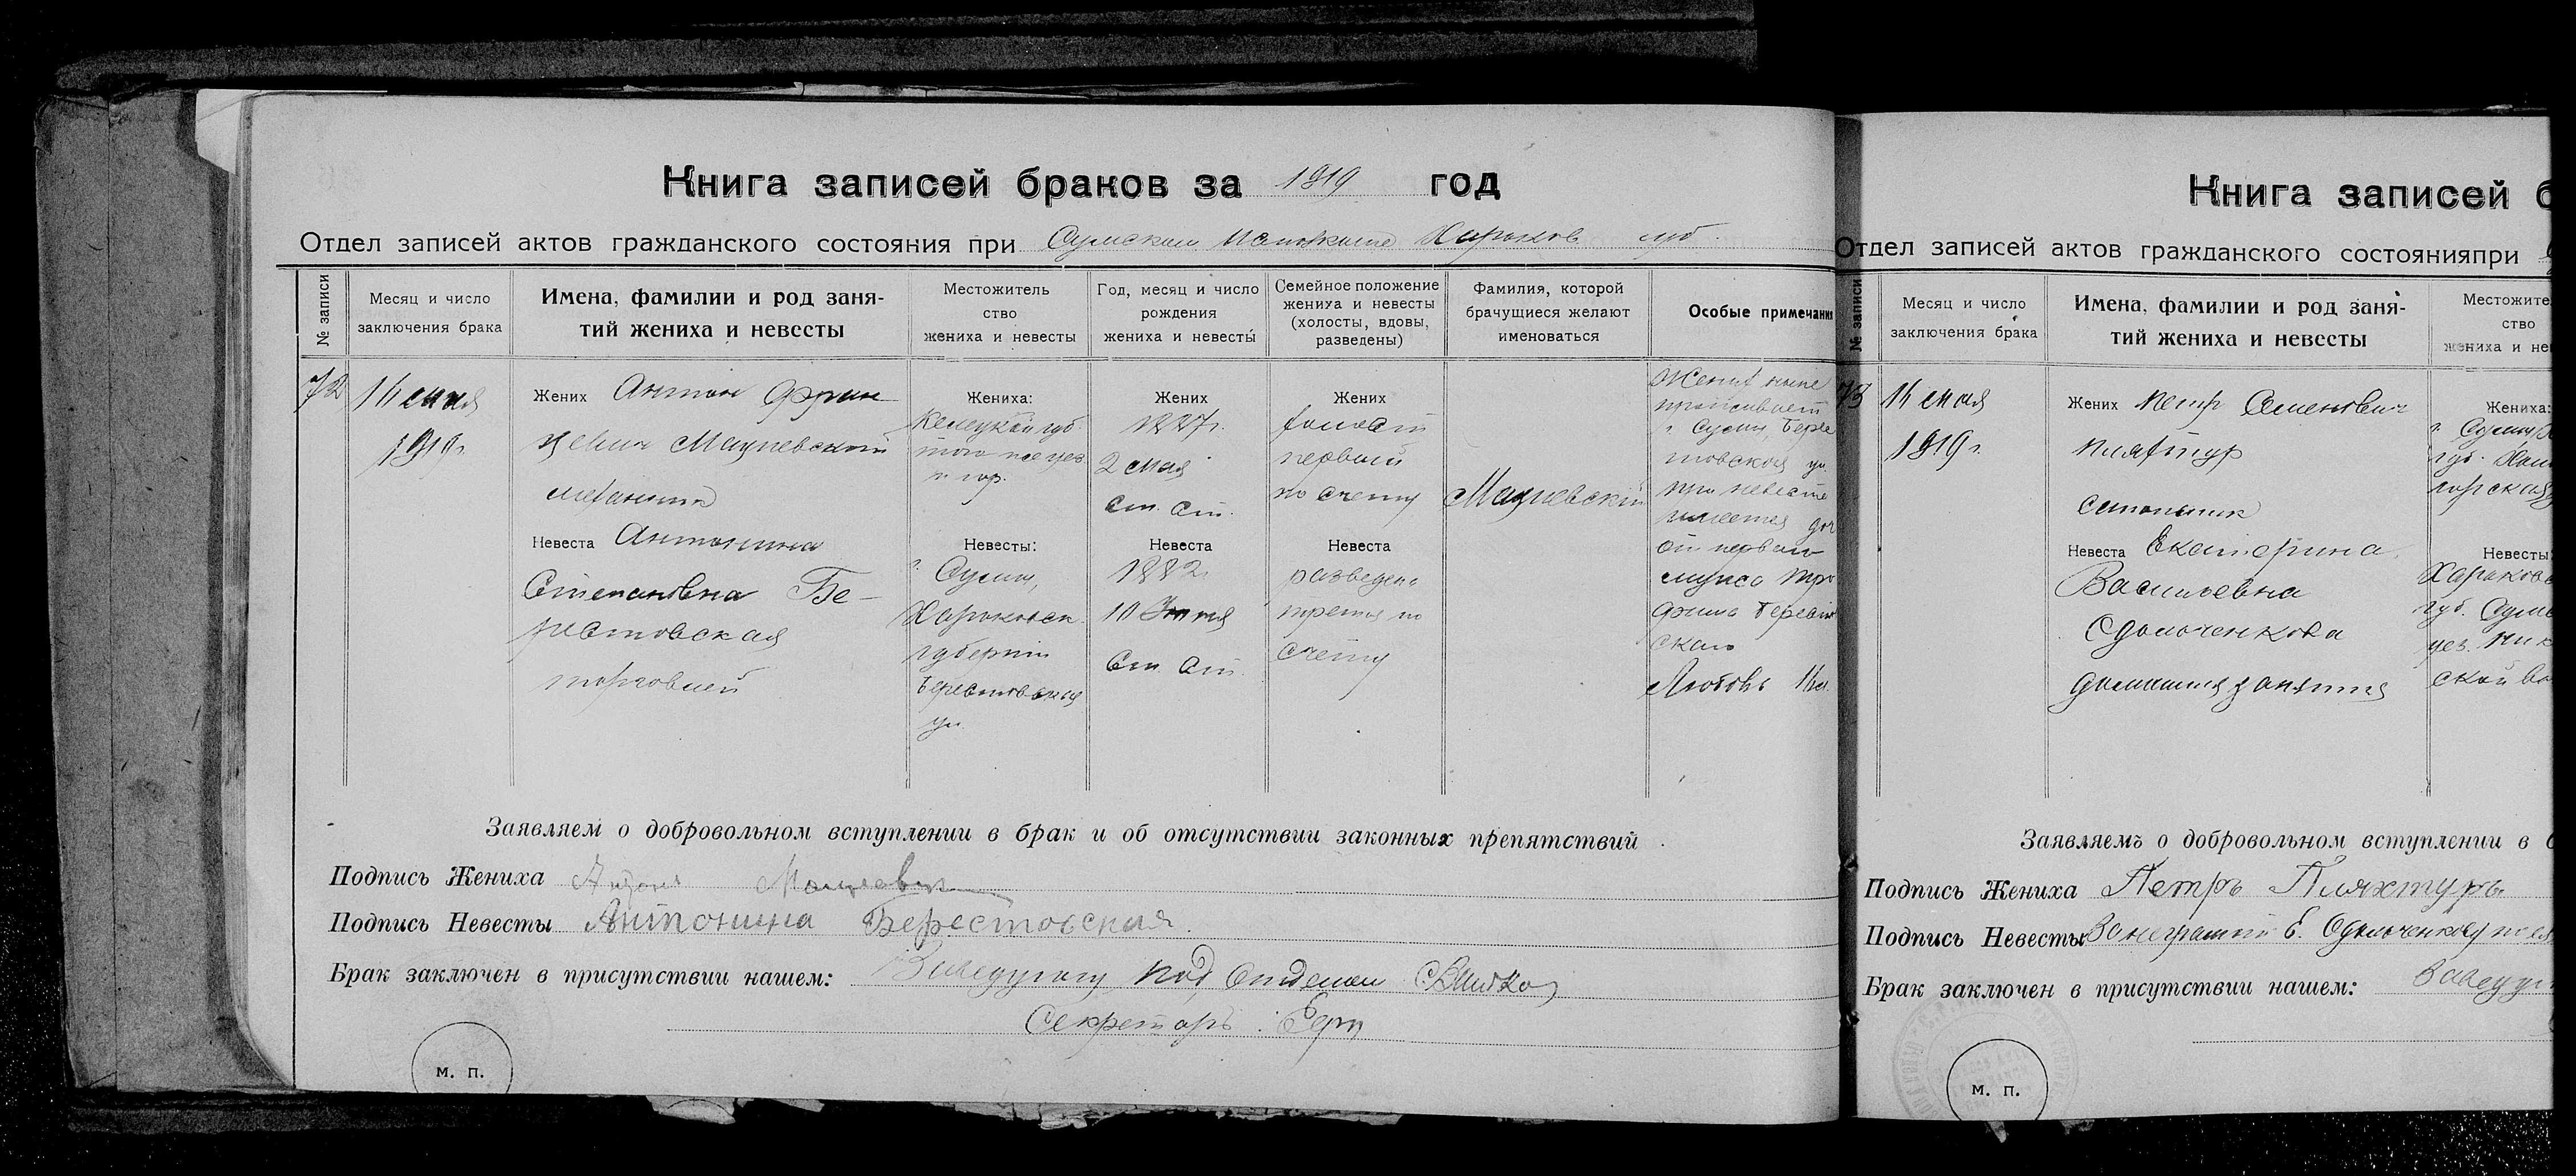 Книга записей браков за 1919 год
Отдел записей актов гражданского состояния при Сумском Исполкоме Харьков губ.
№ записи
Месяц и число
заключения брака
Имена, фамилии и род заня-
тий жениха и невесты
Местожитель
ство
жениха и невесты
Год, месяц и число
рождения
жениха и невесты
Семейное положение
жениха и невесты
(холосты, вдовы,
разведены)
Фамилия, которой
брачущиеся желают
именоваться
Особые примечания
72
14 мая
1919 г.
Жених Антон Фран
цевич Мацневский
механик
Невеста Антонина
Степановна Бе-
рестовская
торговлей
Жениха:
Келецкой губ.
того же уез.
и гор.
Невесты:
г. Сумы,
Харьковск.
губернии
Берестовская
ул.
Жених
1887 г.
2 мая
ст. ст.
Невеста
1882
10 Июня
Ст. Ст.
Жених
холост
первый
по счету
Невеста
разведена
третья по
счету
Мацневский
Жених ныне
проживает
г. Сумы, Бере
товская ул.
при невесте
имеется доч
от первого
мужа Тро
фима Берестов
ского
Любовь 14 л.
Заявляем о добровольном вступлении в брак и об отсутствии законных препятствий
Подпись Жениха Антонъ
Подпись Невесты Антонина Берестовская.
Брак заключен в присутствии нашем: Заведующий Под Отделом
Секретарь:
М. П.
Книга записей б
Отдел записей актов гражданского состоянияпри
№ записи
Месяц и число
заключения брака
Имена, фамилии и род заня-
тий жениха и невесты
Местожите
ство
жениха и не
73
14 мая
1919 г.
Жених Петр Семенович
Пляхтур
сапожник
Невеста Екатерина
Васильевна
Одольченкова
домашния занятия
Жениха:
г. Сумы
губ.
горская
Невесты
Харьковс
губ. Сумс
уез.
ской во
Заявляемъ о добровольном вступлении в б
Подпись Жениха Петръ Пляхтуръ
Подпись Невесты За неграмот Е. Одольченкову
Брак заключен в присутствии нашем: Заведую
М. П.